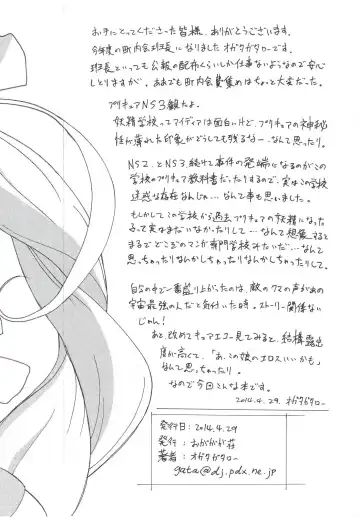 お手にとってくださった皆様、ありがとうございます。
今年度の町内会班長になりましたオガタガタローです。
班長といっても公報の配布くらいしか仕事ないようなので安心
しとりますが、ああでも町内会費集めはちょっと大変だった。
プリキュアNS3観たよ。
妖精学校ってアイディアは面白いけど、プリキュアの神秘
性が薄れた印象がどうしても残るなー…なんて思ったり。
NS2、とNS3続けて事件の発端になるのがこの
学校のプリキュア教科書だったりするので、実はこの学校
迷惑な存在なんじゃ…なんて事も思いました。
もしかしてこの学校から過去プリキュアの妖精になった
子って実はまだいなかったりして…なんて想像すると
まるでどこぞのマンガ専門学校みたいだ…なんて
思っちゃったりなんかしちゃったりなんかしちゃったりして。
自分の中で一番盛り上がったのは、敵のクマの声が虫の
宇宙最強の人だと気付いた時。ストーリー関係ない
じゃん!
あと、改めてキュアエコー見てみると、結構露出
度が高くて、「あ、この娘のエロスいいかも」
なんて思っちゃったり。
なので今回こんな本です。
2014.4.29. オガタガタロー
発行日:2014.4.29
発行:おががが荘
著者:オガタガタロー
gata@dj.pdx.ne.jp